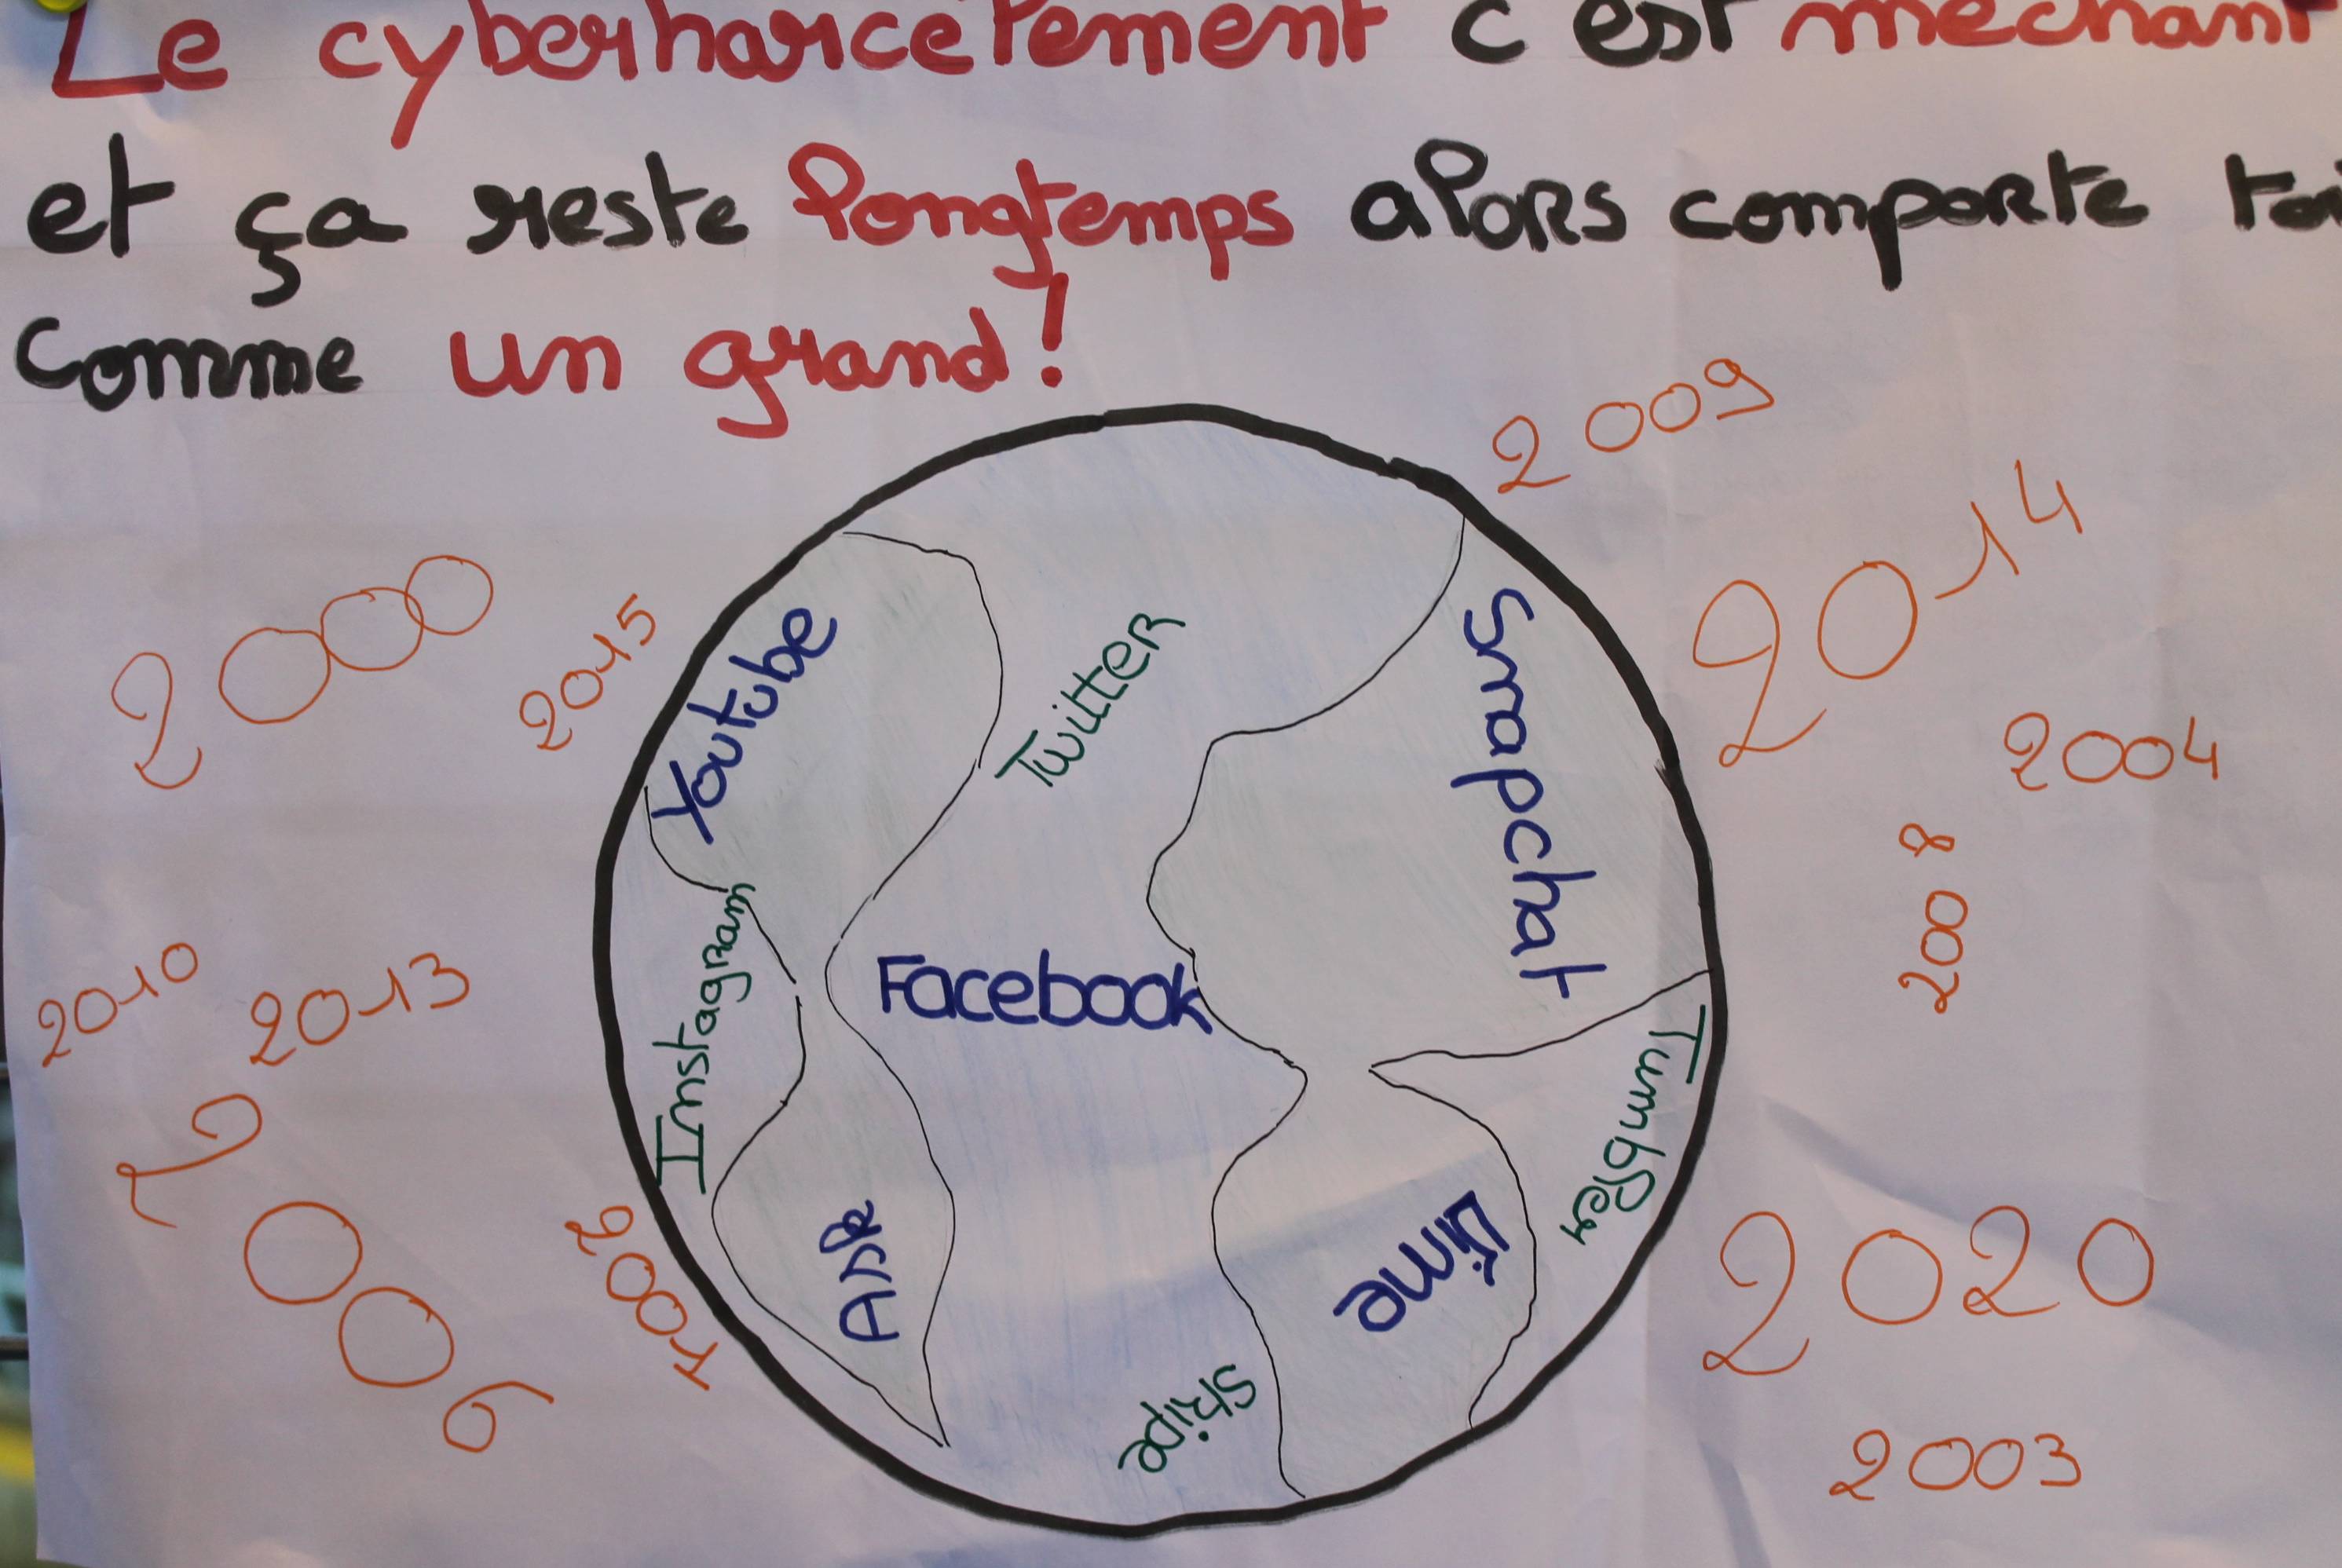 Le cyberharcèlement c'est méchant
et ça reste longtemps alors comporte toi
comme un grand!
2009
2014
2000
2015
Youtube
Twitter
Snapchat
2004
2008
Instagram
Facebook
2010
2013
Tumbler
2006
Ask
Vine
2020
Skipe
2003